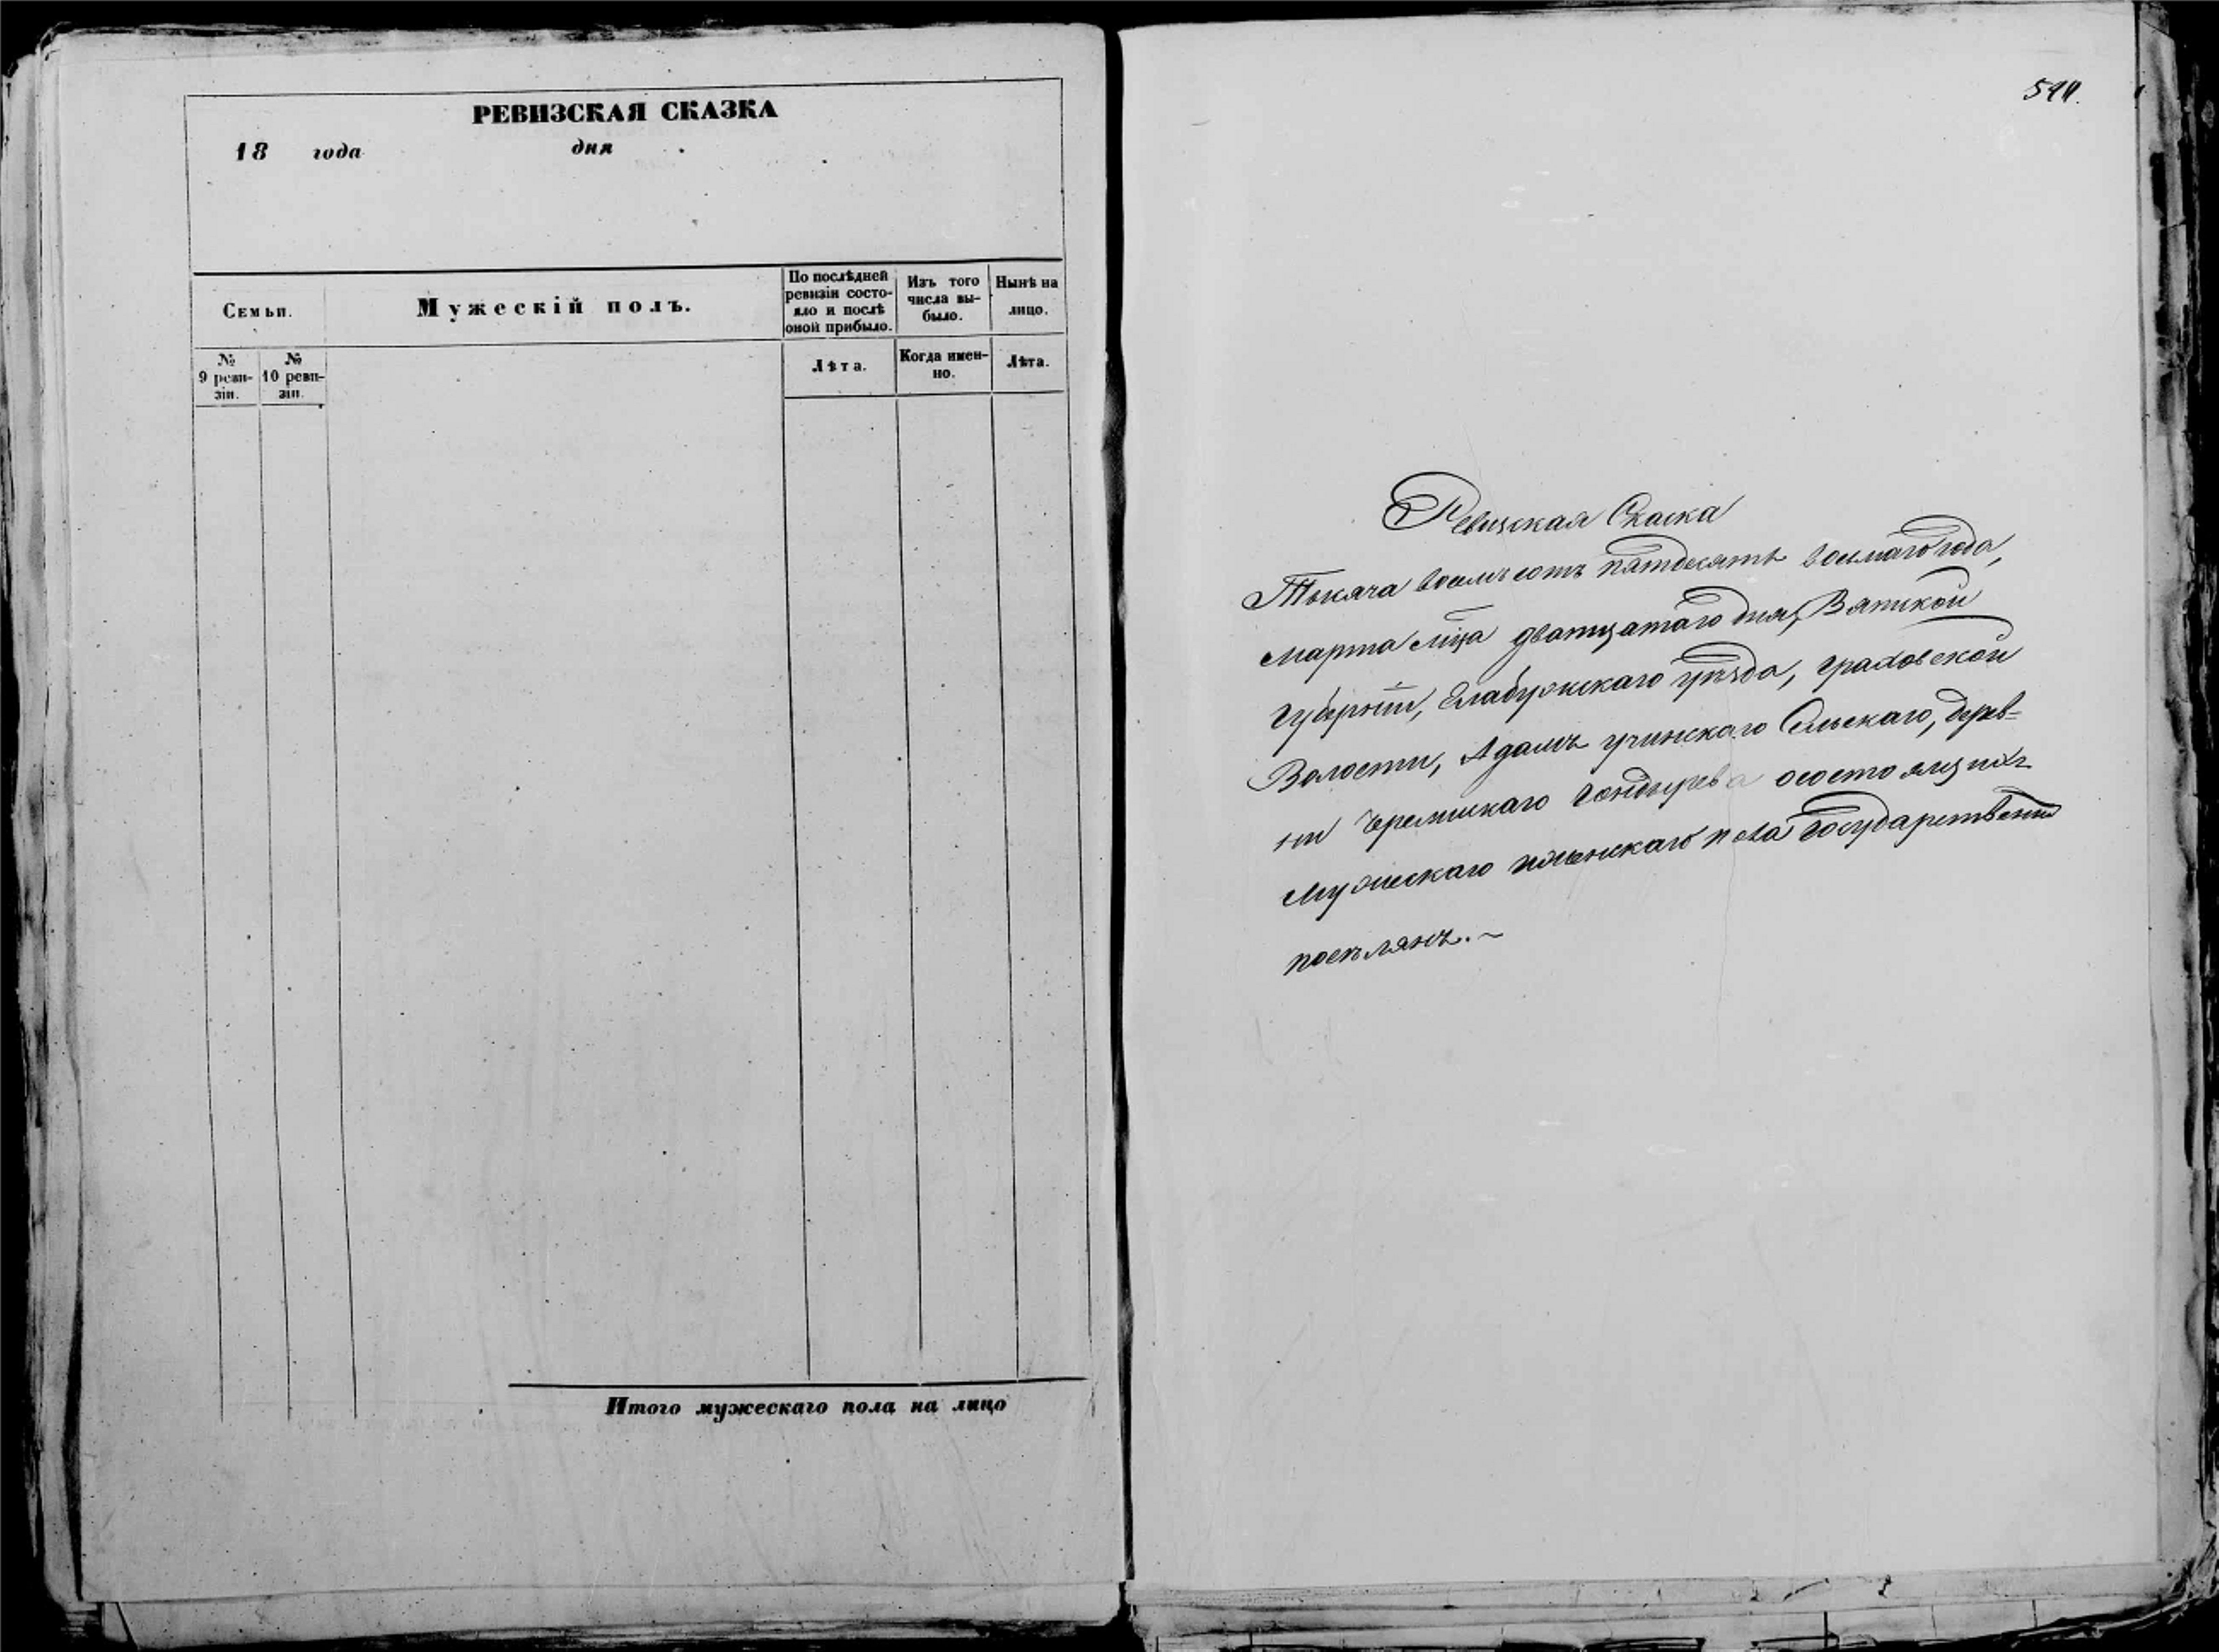 РЕВИЗСКАЯ СКАЗКА
18 года дня
Семьи.
Мужескій полъ.
По послѣдней ревизіи состояло и послѣ оной прибыло.
Изъ того числа выбыло.
Нынѣ на лицо.
№ 9 ревизіи.
№ 10 ревизіи.
Лѣта.
Когда именно.
Лѣта.
Итого мужескаго пола на лицо
Ревизская Скаска
Тысяча восемьсотъ пятдесятъ восмаго года,
марта мца дватцатаго дня, Вятской
губерніи, Елабужскаго уѣзда, граховской
Волости, Адамъ учинскаго Сельскаго, дерев=
ни Черемискаго Гондырева осостоящихъ
мужескаго иженскаго пола государственн
поселянъ.~